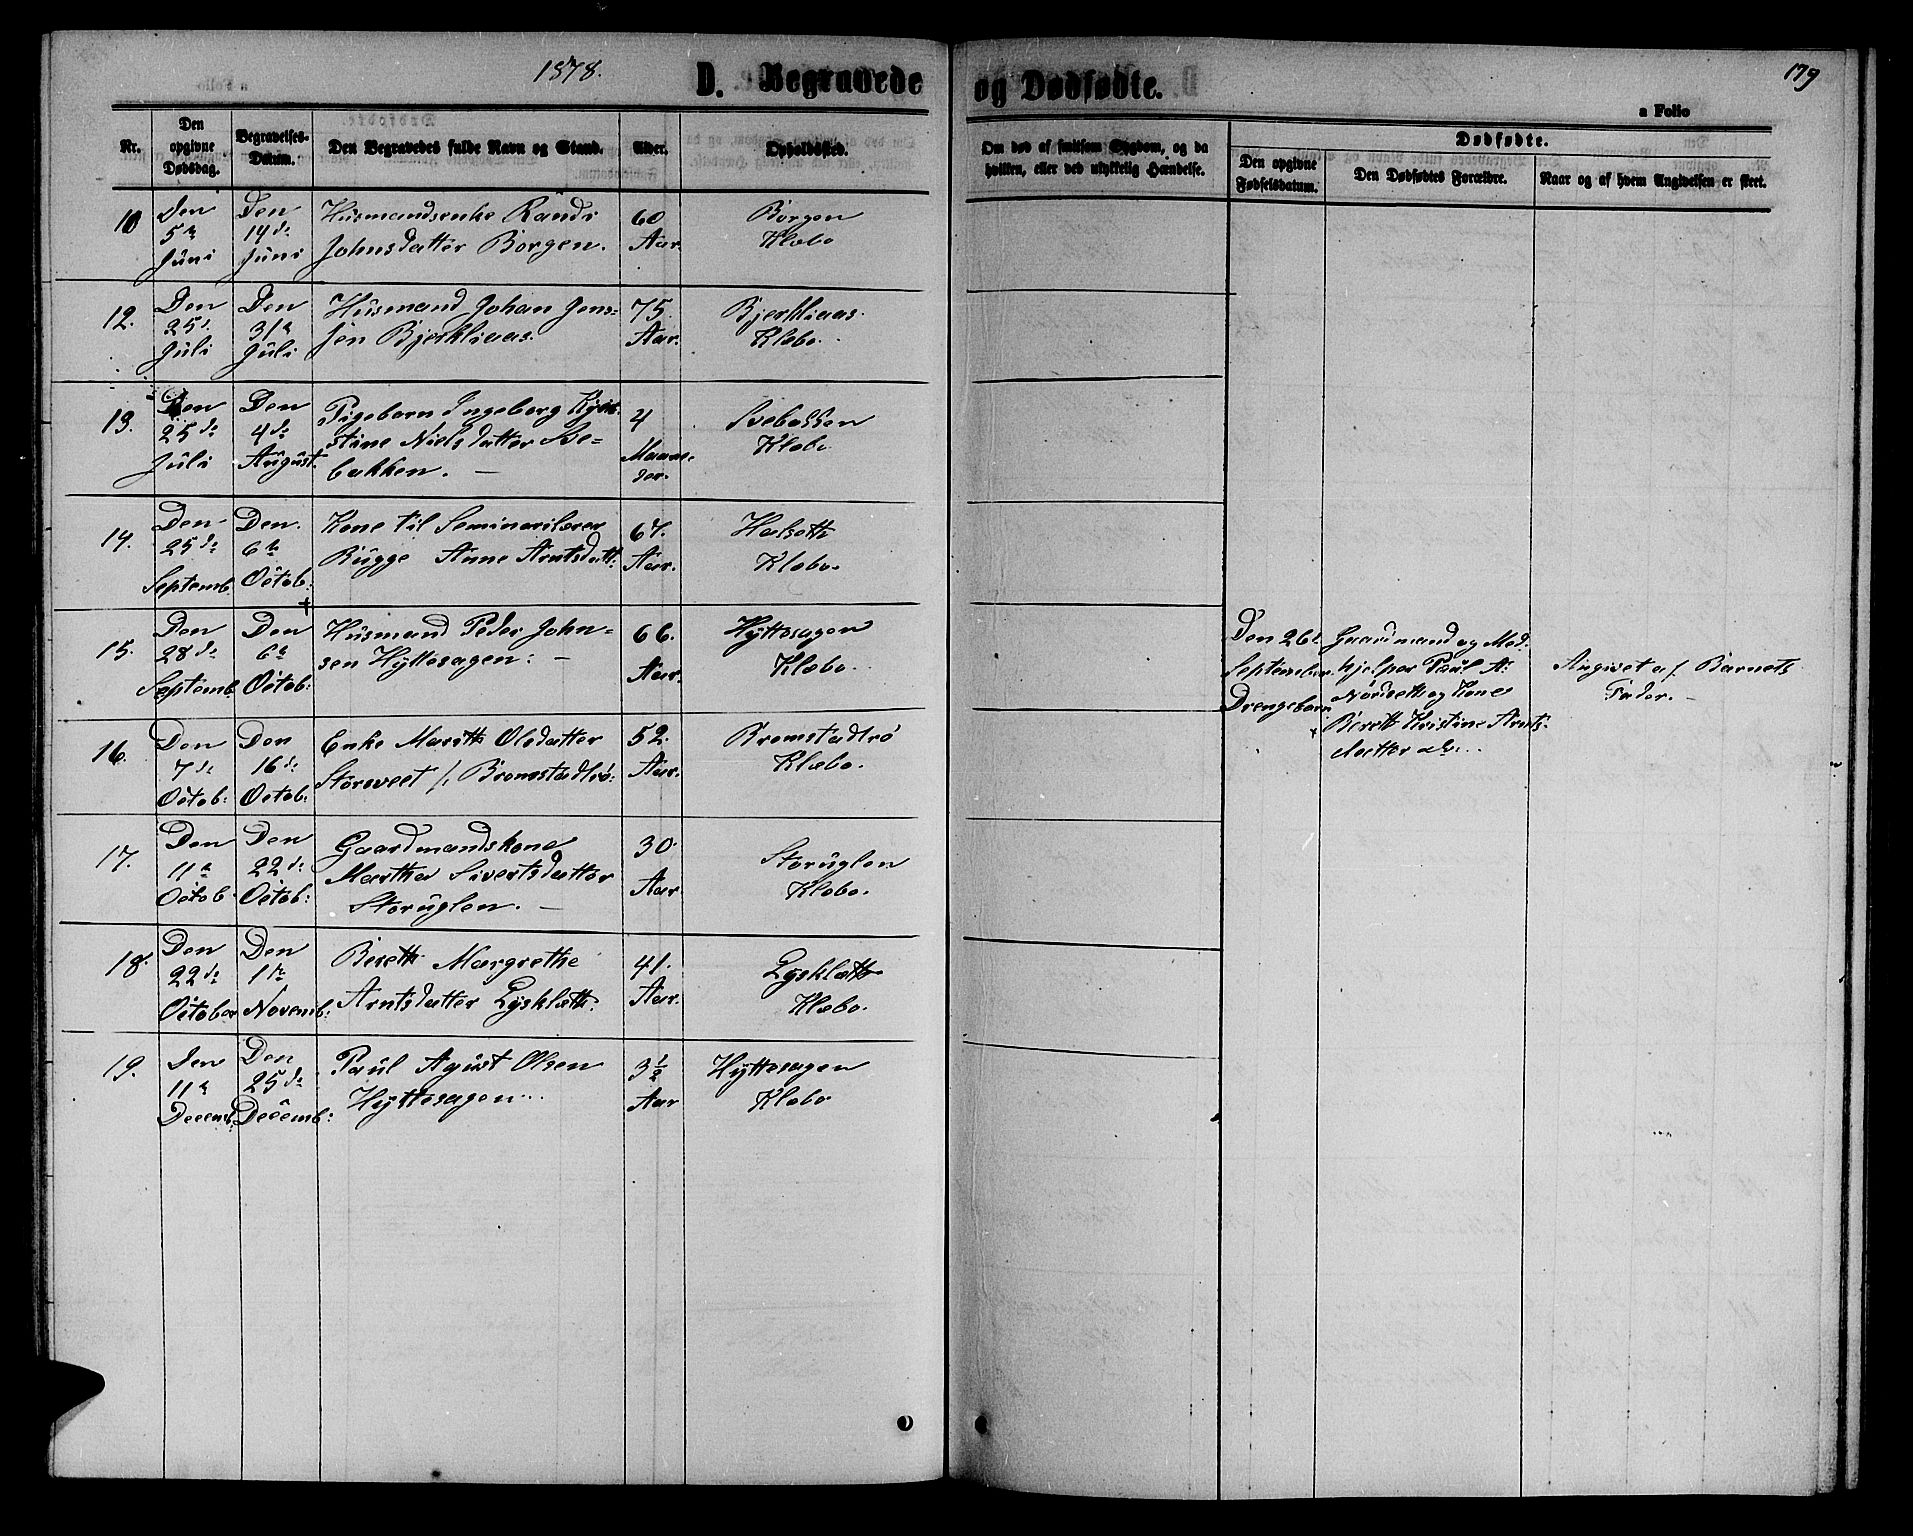 1878.
D. Begravede og Dødfødte.
179
a Folio
Nr.
Den opgivne Dødsdag.
Begravelses-Datum.
Den Begravedes fulde Navn og Stand.
Alder.
Opholdssted.
Om død af smitsom Sygdom, og da
hvilken, eller ved ulykkelig Hændelse.
Dødfødte.
Den opgivne
Fødselsdatum.
Den Dødfødtes Forældre.
Naar og af hvem Angivelsen er skeet.
10
Den 5te Juni
Den 14de Juni
Husmandsenke Randi
Johnsdatter Borgen.
60 Aar.
Borgen
Klæbo
12.
Den 25d. Juli
Den 31te Juli
Husmand Johan Jens-
sen Bjerkliaas.
75. Aar.
Bjerkliaas.
Klæbo.
13.
Den 25de Juli
Den 4de August.
Pigebarn Ingeborg
stine Nielsdatter Sve-
bakken. —
4 Maane-
der.
Svebakken
Klæbo
14.
Den 25de Septemb.
Den. 6te Octob:
Kone til Seminarilærer
Bugge Anne Arntsdatt:
67. Aar.
Halseth
Klæbo.
15.
Den 28de Septemb.
Den 6te Octob:
Husmand Peder John=
sen Hyttesagen: —
66. Aar.
Hyttesagen
Klæbo.
Den 26d
September.
Drengebarn
Gaardmand og Med-
hjelper Paul A:
Nordseth og Kone
Bereth Kristine Arnts-
datter
Angivet af Barnets
Fader. —
16.
Den 7de Octob:
Den 16de Octob:
Enke Marith Olsdatter
Storeveet /: Bromstadtrø:
52. Aar.
Bromstadtrø
Klæbo.
17.
Den 11te Octob
Den 22de Octob:
Gaardmandskone
Martha Sivertsdatter
Storuglen. —
30. Aar
Storuglen
Klæbo.
18.
Den 22de October
Den 1te Novemb:
Bereth Margrethe
Arntsdatter Lysklæth.
41. Aar.
Lysklæth
Klæbo.
19.
Den 11te Decemb:
Den 25de Decemb:
Paul Agust Olsen
Hyttesagen
3½ Aar
Hyttesagen
Klæbo